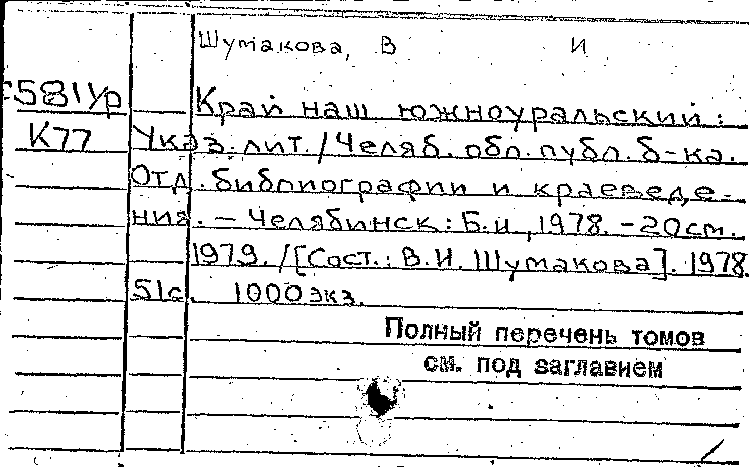 Шумакова, В И
С581Ур Край наш южноуральский :
К77 Указ. лит. / Челяб. обл. публ. б-ка.
Отд. библиографии и краеведе-
ния. — Челябинск : Б. и., 1978. — 20 см.
1979. / [Сост. : В. И. Шумакова]. 1978.
51 с. 1000 экз.
Полный перечень томов
см. под заглавием